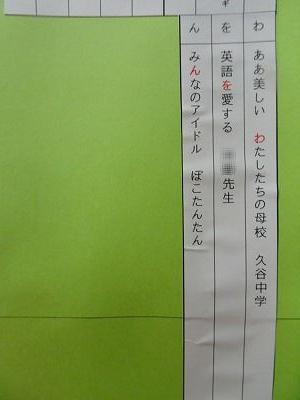 わ ああ美しい わたしたちの母校 久谷中学
を 英語を愛する 先生
ん みんなのアイドル ぽこたんたん